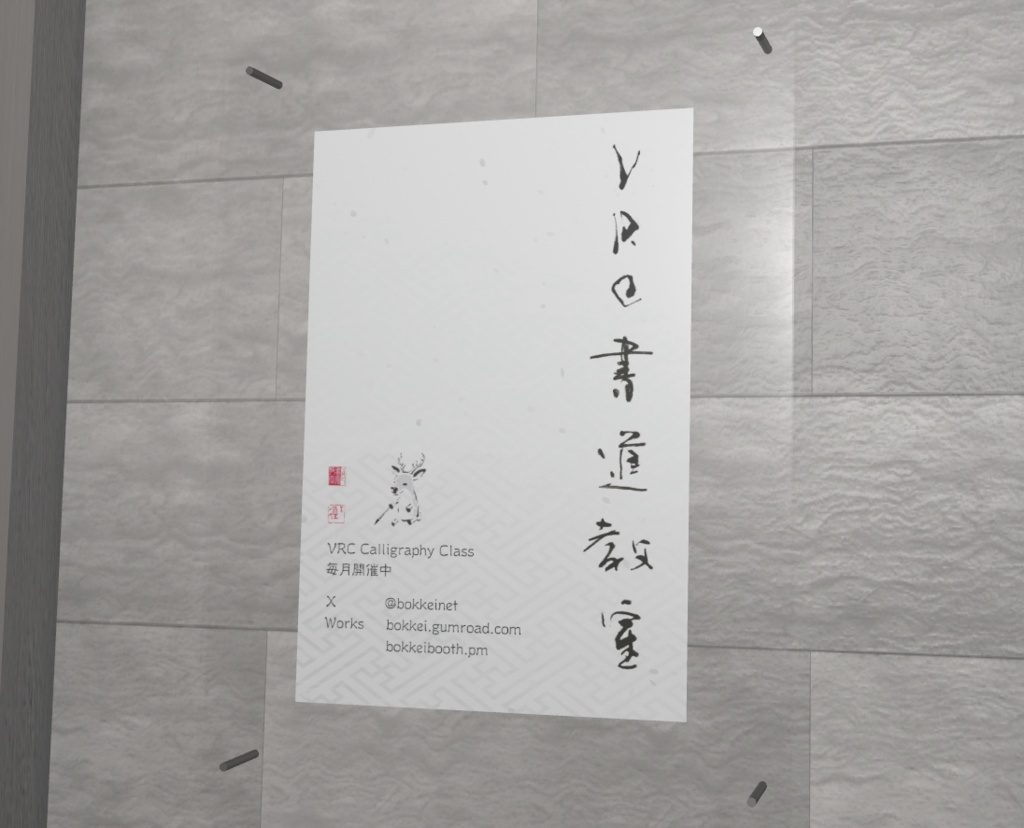 VRC書道教室
VRC Calligraphy Class
毎月開催中
X @bokkeinet
Works bokkei.gumroad.com
bokkeibooth.pm